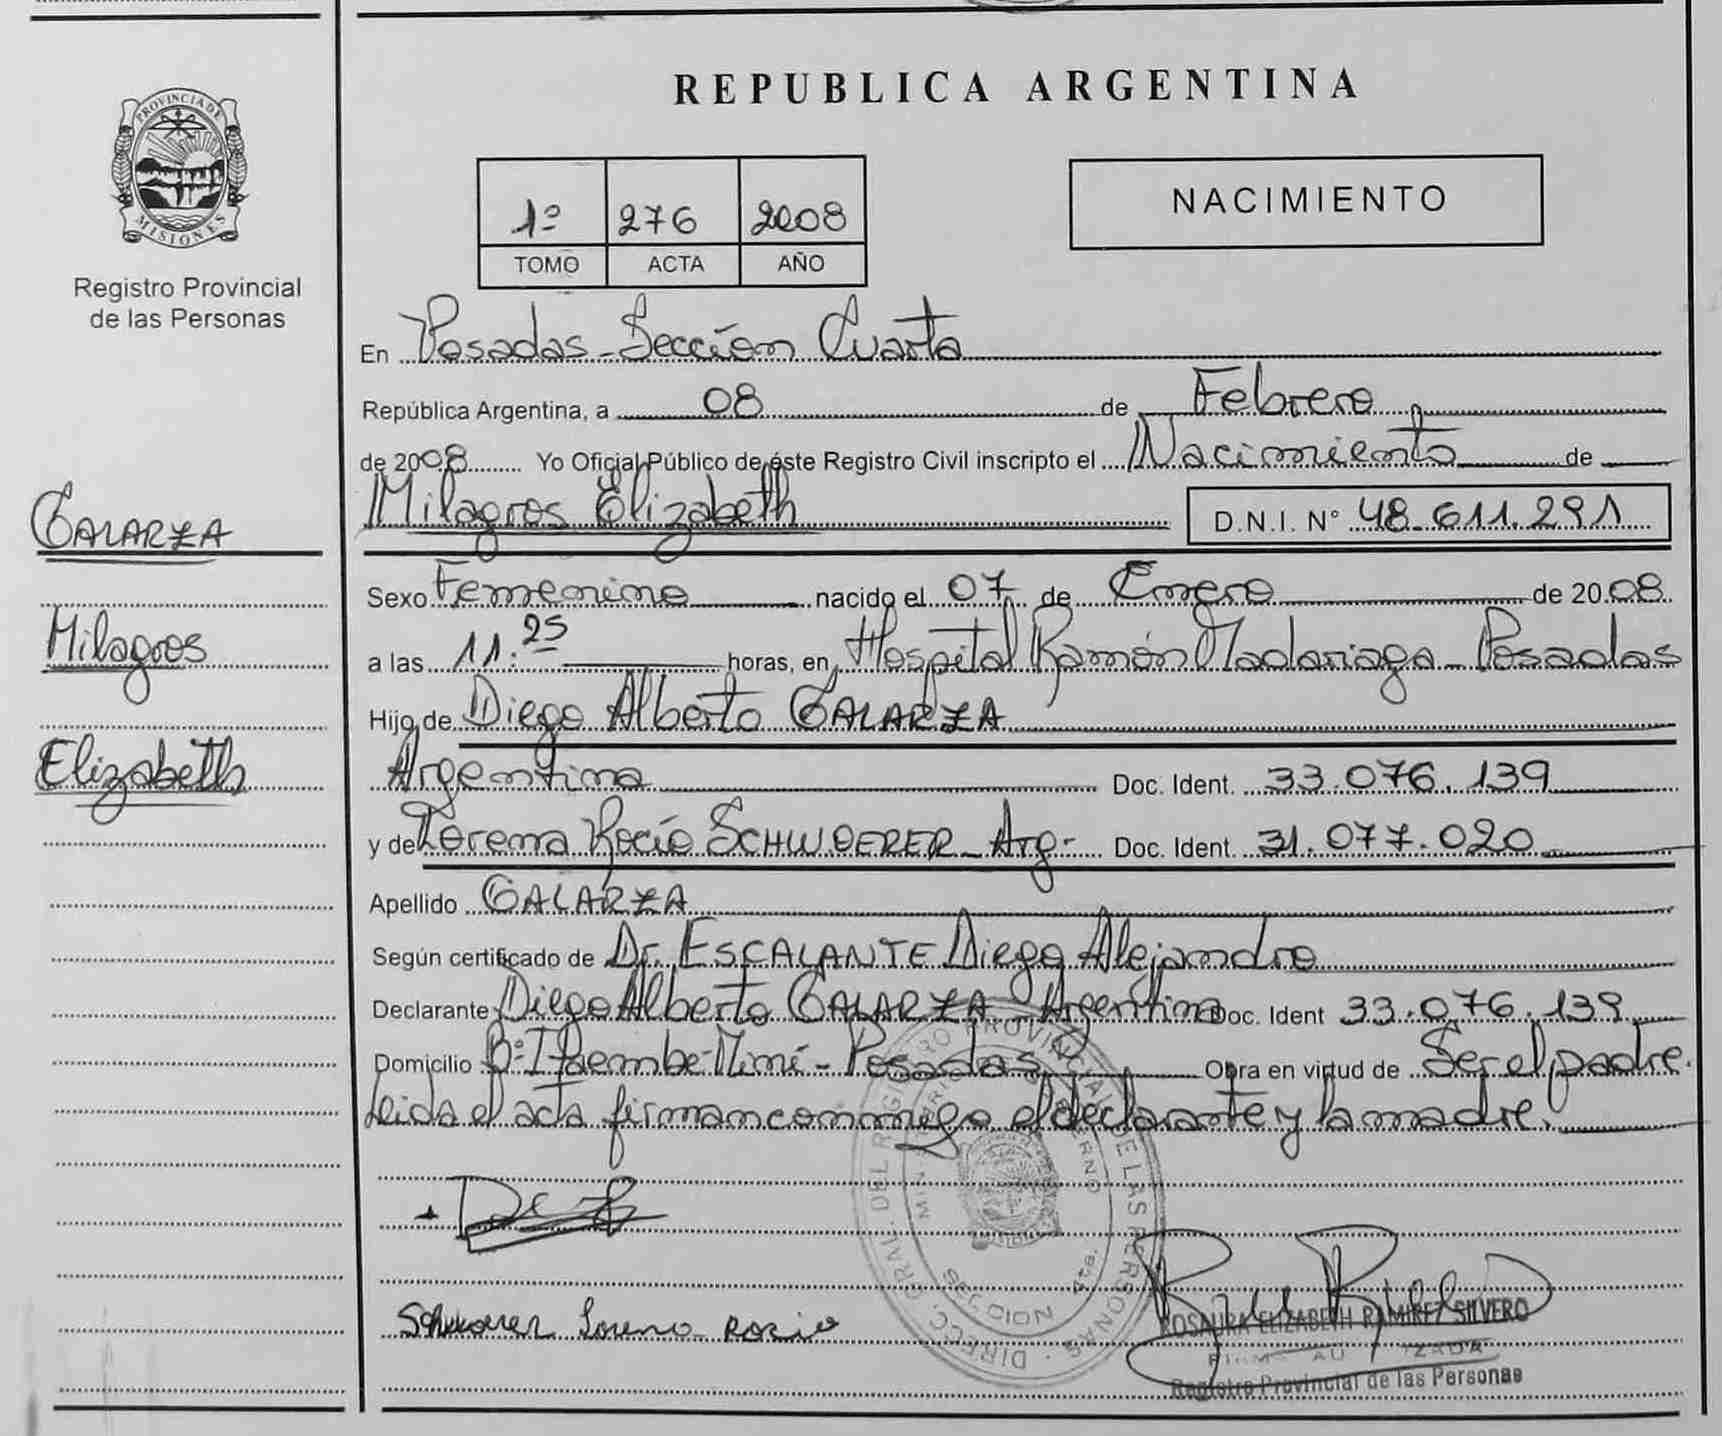 REPUBLICA ARGENTINA
PROVINCIA DE
MISIONES
Registro Provincial
de las Personas
1º 276 2008
TOMO ACTA AÑO
NACIMIENTO
En Posadas - Sección Cuarta
República Argentina, a 08 de Febrero
de 2008 Yo Oficial Público de éste Registro Civil inscripto el Nacimiento de
Milagros Elizabeth D.N.I. Nº 48.611.291
GALARZA
Milagros
Elizabeth
Sexo Femenino nacido el 07 de Enero de 2008
a las 11:25 horas, en Hospital Ramón Madariaga - Posadas
Hijo de Diego Alberto GALARZA
Argentina Doc. Ident. 33.076.139
y de Lorena Rocío SCHWOERER - Arg- Doc. Ident. 31.077.020
Apellido GALARZA
Según certificado de Dr. ESCALANTE Diego Alejandro
Declarante Diego Alberto GALARZA - Argentina Doc. Ident 33.076.139
Domicilio Bº Itaembe Miní - Posadas Obra en virtud de Ser el padre.
Leida el acta firman conmigo el declarante y la madre.
DIRECC. GRAL. DEL REGISTRO PROVINCIAL DE LAS PERSONAS
Schwoerer Lorena Rocio
ROSAURA ELIZABETH RAMIREZ SILVERO
FIRMA AUTORIZADA
Registro Provincial de las Personas